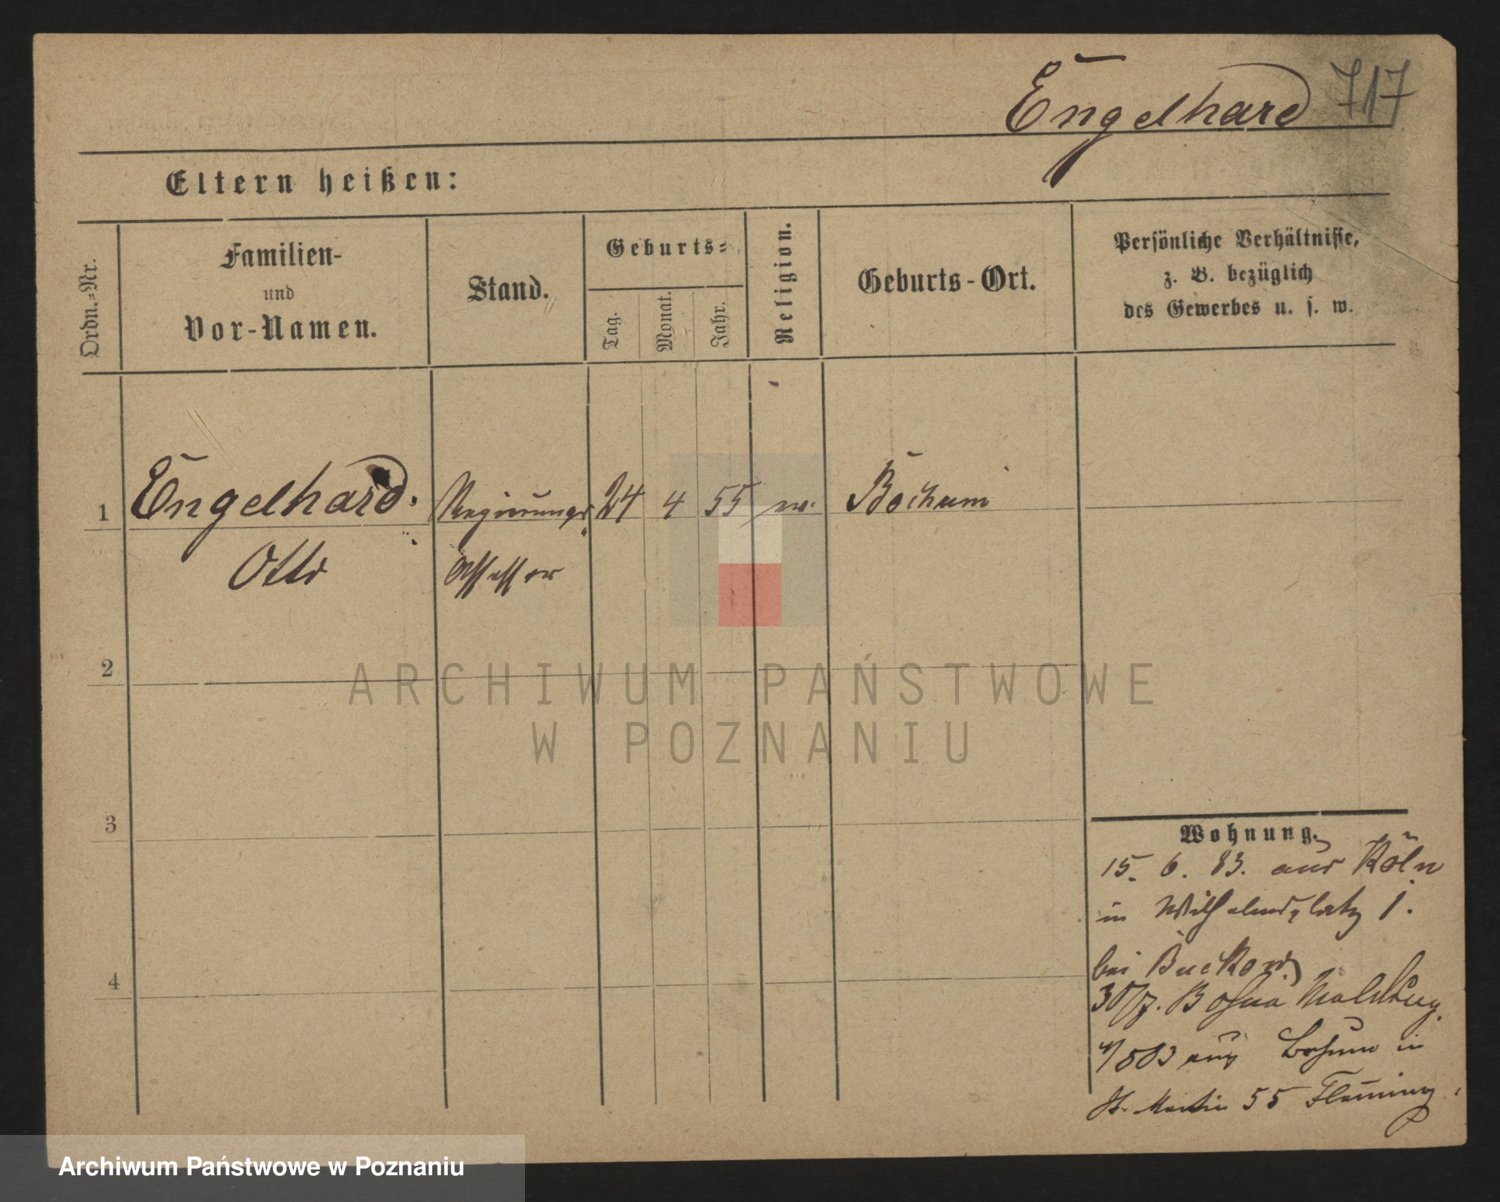 Engelhard 717
Eltern heißen:
Ordn.-Nr.
Familien-
und
Vor-Namen.
Stand.
Geburts-
Tag.
Monat.
Jahr.
Religion.
Geburts-Ort.
Persönliche Verhältnisse,
z. B. bezüglich
des Gewerbes u. s. w.
1 Engelhard. Regierungs 24 4 55 ev. Bochum
Otto Assessor
2
3
4
Wohnung.
15. 6. 83. aus Köln
in Wilhelmsplatz 1.
bei
30/7.
aus Bochum in
St. Martin 55
ARCHIWUM PAŃSTWOWE
W POZNANIU
Archiwum Państwowe w Poznaniu